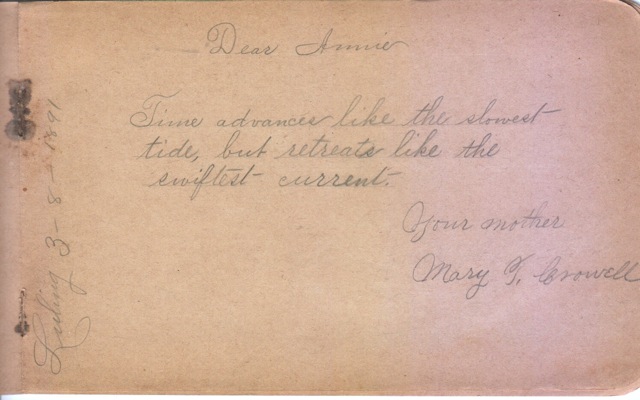 Dear Annie
Time advances like the slowest
tide, but retreats like the
swiftest current.
Your mother
Mary T. Crowell
Luling 3-8-1891